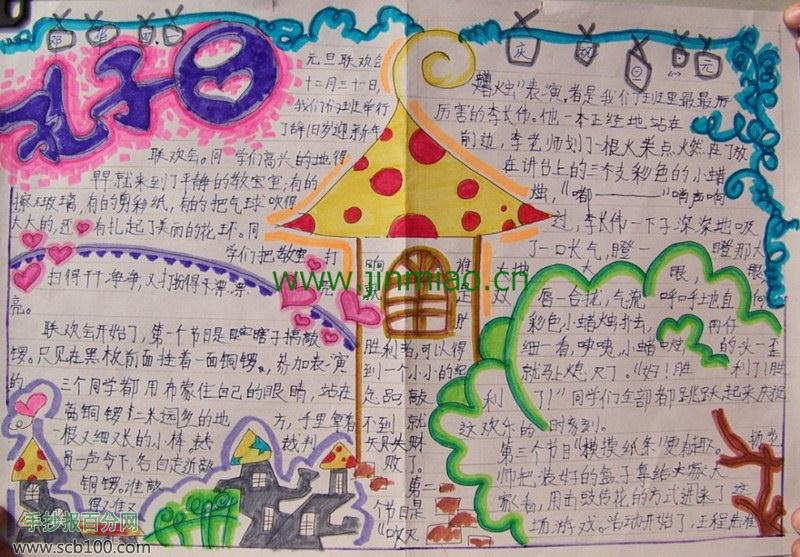 孔子曰
庆 祝 元 旦
元旦联欢会
十二月三十一日,
我们班举行
了辞旧岁迎新年
联欢会。同学们高兴的地得
早就来到了平静的教室里,有的
擦玻璃,有的剪彩纸,有的把气球吹得
大大的,还有扎起了美丽的花环。同
学们把教室打
扫得干干净净,又打扮得漂漂
亮亮。
联欢会开始了,第一个节目是瞎子摸敲
锣。只见在黑板前面挂着一面铜锣,参加表演
的三个同学都用布蒙住自己的眼睛,站在
离铜锣三米远多的地方,手里拿着
一根又细又长的小棒。裁判
员一声令下,各自走近敲
铜锣。谁敲
响
就
胜
胜利者,可以得
到一个小小的纪
念品敲
不到就
失败
了。
第二
个节目是
“吹灭
蜡烛”表演,看是我们班里最最
厉害的李长伟。他一本正经地站在
前边,李老师划了一根火柴点火然在了放
在讲台上的三个支彩色的小蜡
烛,“嘟——”哨声响
过,李长伟一下子深深地吸
了一口大气,瞪一瞪那大
眼眼,
双唇一合拢,气流呼呼地直向
彩色小蜡烛扑去,
细一看,咦咦,小蜡烛的头一歪
就马上熄灭了。“好!胜利了!胜
利了!”同学们全部都跳跃起来庆祝
这欢乐的时刻到。
第三个节目“模摸纸条”更有趣。杨老
师把装好的盒子拿给大家大
家看,用击鼓传花的方式进来了这
场游戏。活动开始了,王程
www.jinmiao.cn
手抄报百分网
www.scb100.com